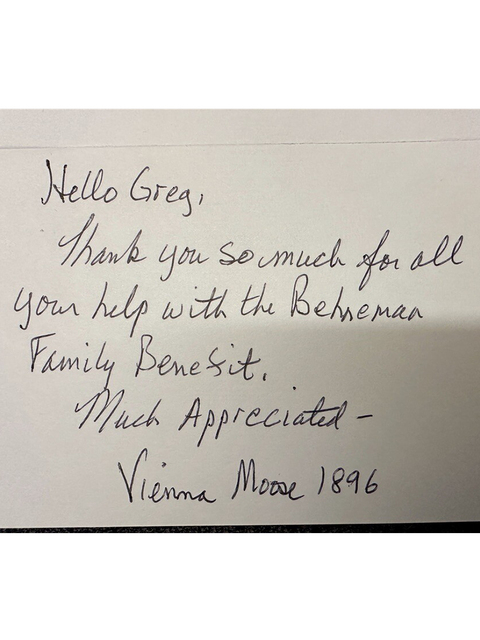 Hello Greg,
Thank you so much for all
your help with the Behneman
Family Benefit.
Much Appreciated -
Vienna Moose 1896